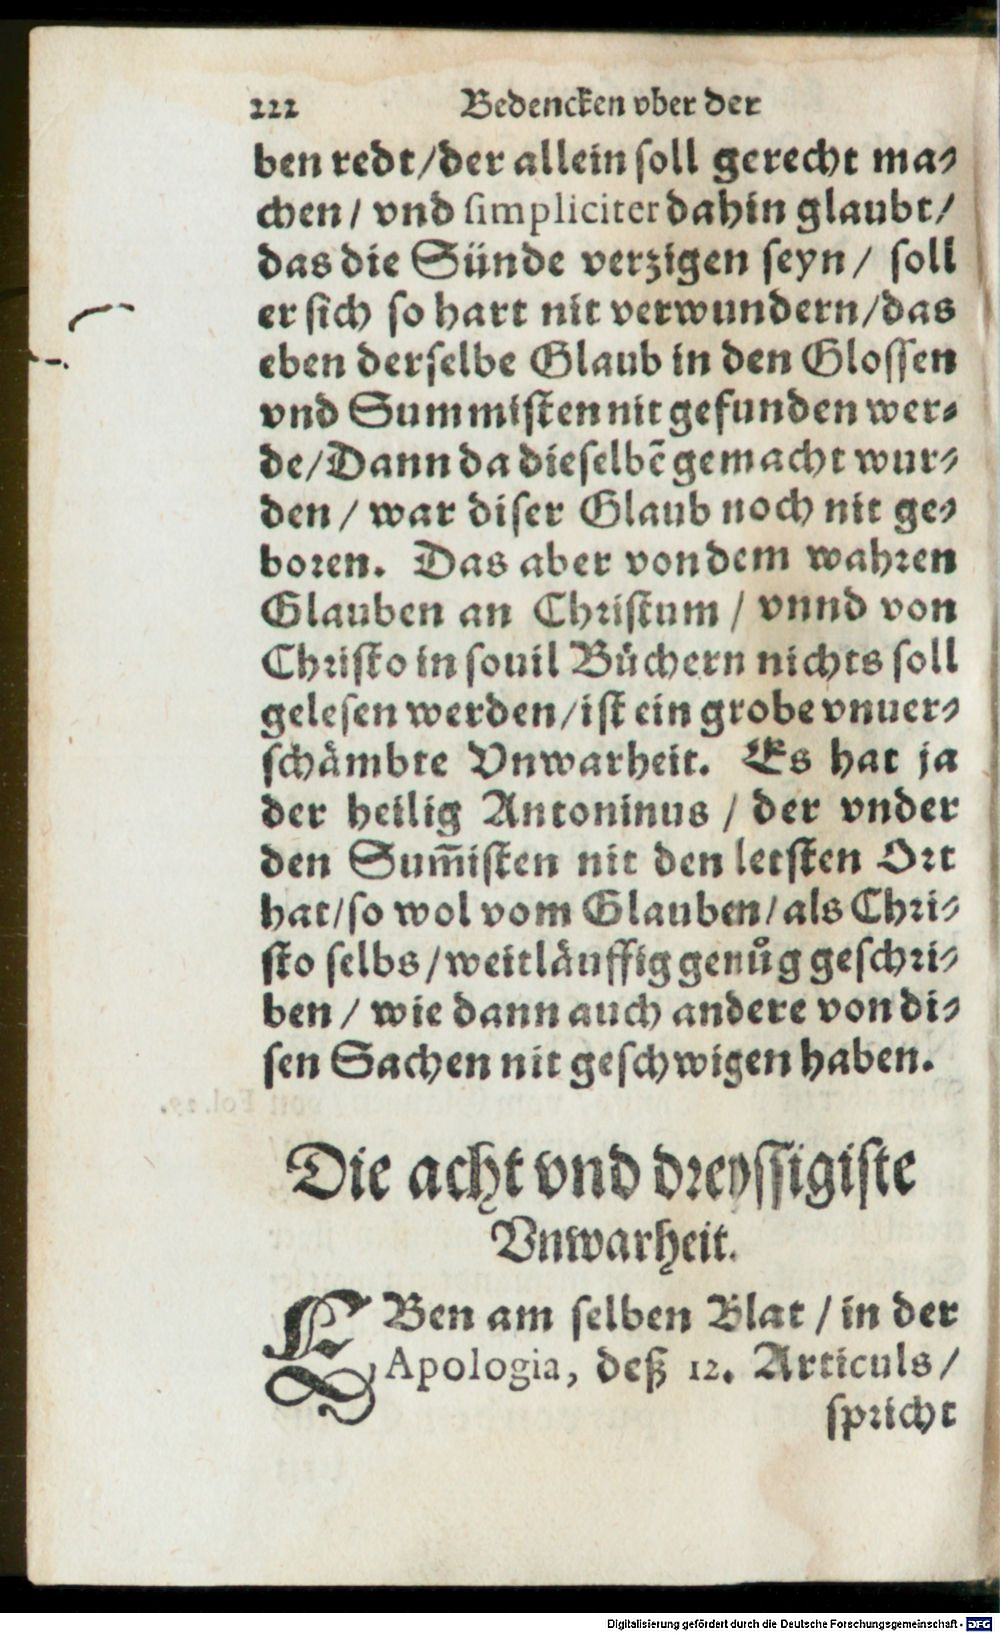 222 Bedencken vber der
ben redt/der allein soll gerecht ma-
chen/ vnd simpliciter dahin glaubt/
das die Sünde verzigen seyn/ soll
er sich so hart nit verwundern/das
eben derselbe Glaub in den Glossen
vnd Summisten nit gefunden wer-
de/Dann da dieselbē gemacht wur-
den/ war diser Glaub noch nit ge-
boren. Das aber von dem wahren
Glauben an Christum/ vnnd von
Christo in souil Büchern nichts soll
gelesen werden/ist ein grobe vnuer-
schämbte Vnwarheit. Es hat ja
der heilig Antoninus/ der vnder
den Sum̄isten nit den letsten Ort
hat/so wol vom Glauben/als Chri-
sto selbs/weitläuffig genůg geschri-
ben/ wie dann auch andere von di-
sen Sachen nit geschwigen haben.
Die acht vnd dreyssigiste
Vnwarheit.
EBen am selben Blat/in der
Apologia, deß 12. Articuls/
spricht
Digitalisierung gefördert durch die Deutsche Forschungsgemeinschaft - DFG